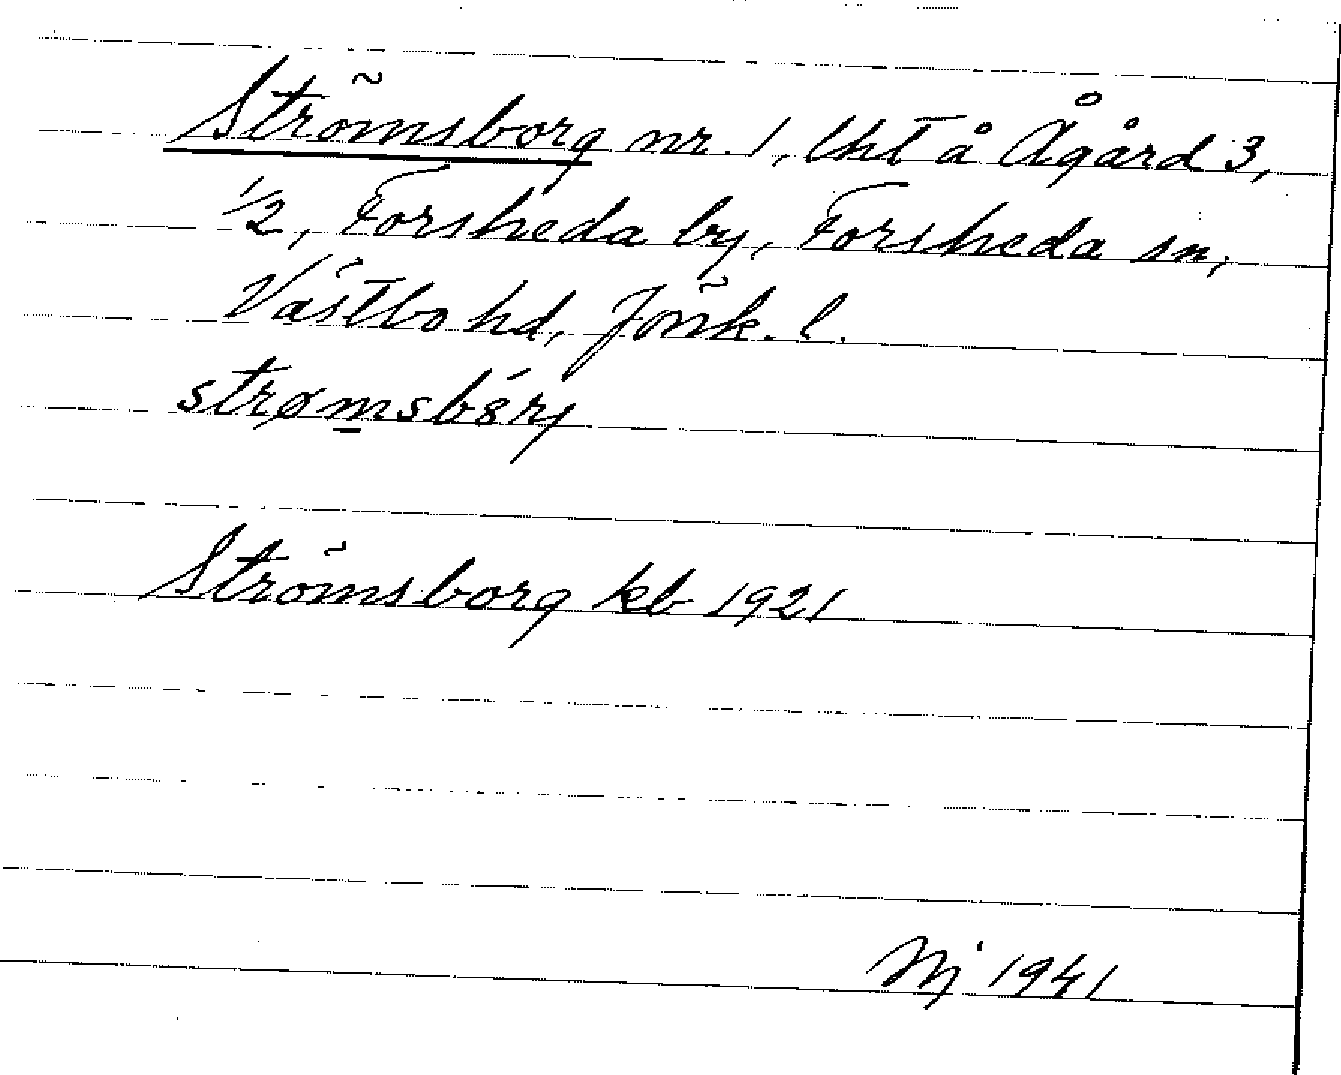 Strömsborg nr. 1, lht å Ågård 3,
1/2, Forsheda by, Forsheda sn,
Västbo hd, Jönk. l.
strømsbórj
Strömsborg kb 1921
1941